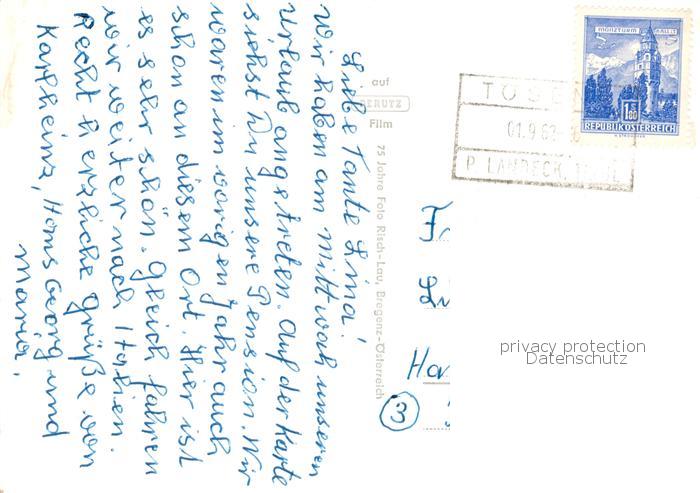 Liebe Tante Lina!
Wir haben am Mittwoch unseren
Urlaub angetreten. Auf der Karte
siehst Du unsere Pension. Wir
waren im vorigen Jahr auch
schon an diesem Ort. Hier ist
es sehr schön. Gleich fahren
wir weiter nach Italien.
Recht herzliche Grüße von
Karlheinz, Hans Georg und
Maria.
auf
PERUTZ
Film
75 Jahre Foto Risch-Lau, Bregenz-Österreich
MÜNZTURM
1.50
REPUBLIK ÖSTERREICH
01.9.63
P. LANDECK, TIROL
3
privacy protection
Datenschutz